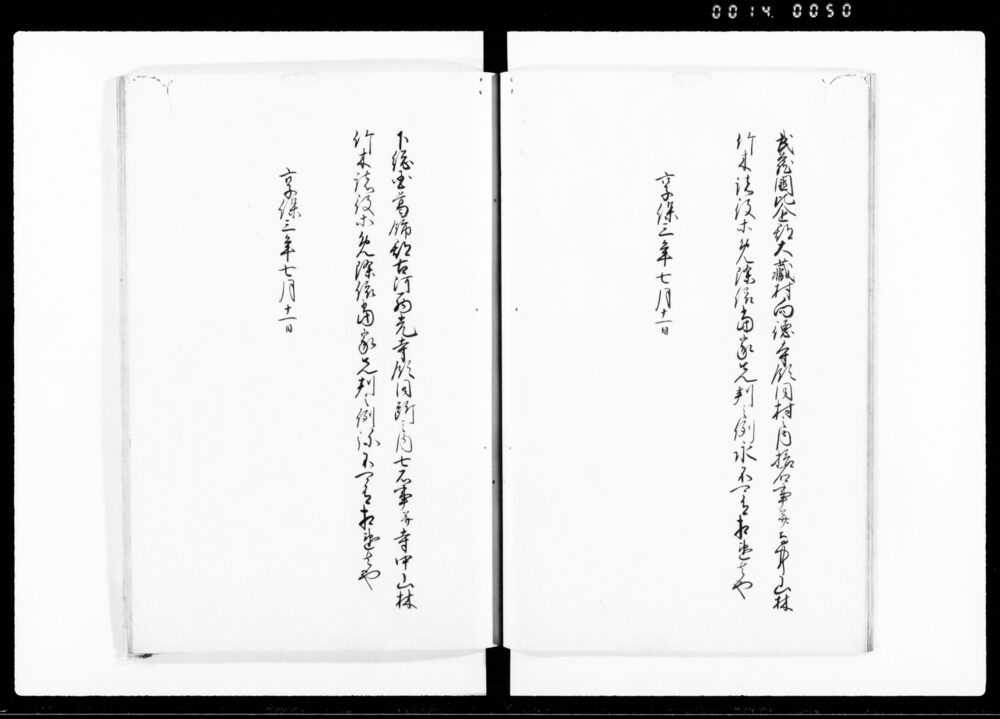 0014 0050
武蔵國比企郡大藏村向徳寺領同村之内拾石事并寺中山林
竹木諸役等免除依當家先判之例永不可有相違者也
享保三年七月十一日
下総国葛飾郡古河西光寺領同所之内七石事并寺中山林
竹木諸役等免除依當家先判之例弥不可有相違者也
享保三年七月十一日